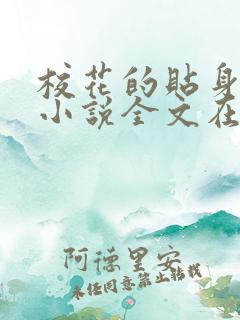 校花的贴身
小説全文在
阿德里安
未经同意禁止转载